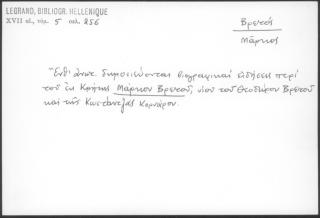 LEGRAND, BIBLIOGR. HELLENIQUE
XVII αἰ, τόμ. 5 σελ. 256
Βρετός
Μάρκος
Ἔνθ' ἀνωτ. δημοσιεύονται βιογραφικαί εἰδήσεις περί
τοῦ ἐκ Κρήτης Μάρκου Βρετοῦ, υἱοῦ τοῦ Θεοδώρου Βρετοῦ
καί τῆς Κωσταντζας Κορνάρου.